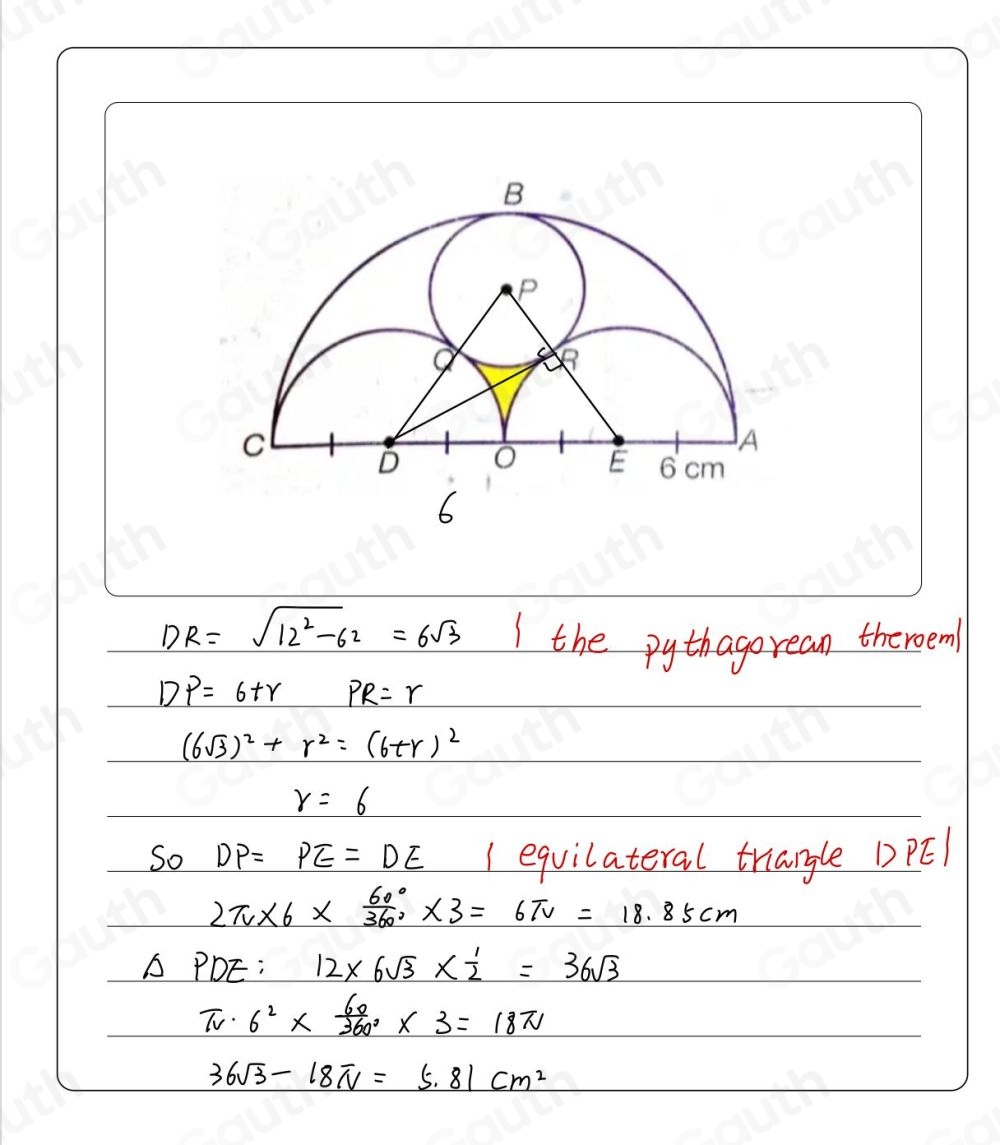 B
P
Q R
C D O E 6 cm A
6
DR = √12²-62 = 6√3 | the pythagorean theroem|
DP = 6+r PR = r
(6√3)² + r² = (6+r)²
r = 6
So DP = PE = DE | equilateral triangle DPE|
2π×6 × 60°/360° ×3 = 6π = 18.85cm
Δ PDE: 12×6√3 ×1/2 = 36√3
π·6² × 60/360° × 3 = 18π
36√3 - 18π = 5.81 cm²
Gauth